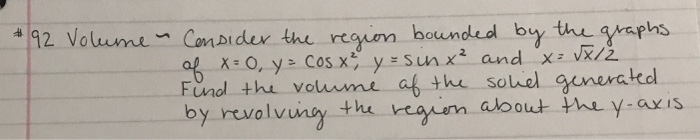 #92 Volume ~ Consider the region bounded by the graphs
of x=0, y = cos x², y = sin x² and x = √x/2
Find the volume of the solid generated
by revolving the region about the y-axis